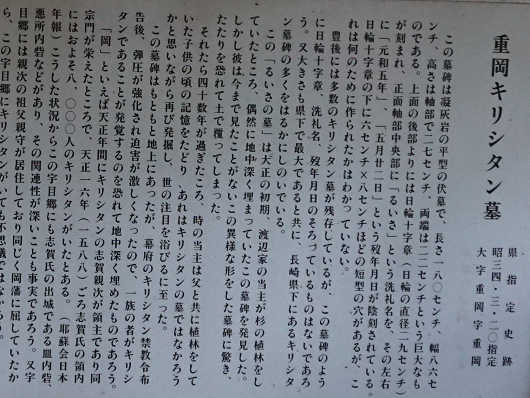 重岡キリシタン墓
県指定史跡
昭三四・三・二〇指定
大字重岡字重岡
この墓碑は凝灰岩の平型の伏墓で、長さ一八〇センチ、幅八六セ
ンチ、高さは軸部で二七センチ、両端は二二センチという巨大なも
のである。上面の後部よりには日輪十字章（日輪の直径二九センチ）
が刻まれ、正面軸部中央部に「るいさ」という洗礼名を、その左右
に「元和五年」、「五月廿二日」という歿年月日が陰刻されている。
日輪十字章の下に六センチ×八センチほどの短型の穴があるが、こ
れは何のために作られたかはわかっていない。
豊後には多数のキリシタン墓が残存しているが、この墓碑のよう
に日輪十字章、洗礼名、歿年月日のそろっているものはないであろ
う。又大きさも県下で最大であると共に、長崎県下にあるキリシタ
ン墓碑の多くをはるかにしのいでいる。
この「るいさの墓」は天正の初期、渡辺家の当主が杉の植林をし
ていたところ、偶然に地中深く埋まっていたこの墓碑を発見した。
しかし彼は今まで見たことがないこの異様な形をした墓碑に驚き、
たたりを恐れて土で覆ってしまった。
それたら四十数年が過ぎたころ、時の当主は父と共に植林をして
いた子供の頃の記憶をたどり、あれはキリシタンの墓ではなかろう
かと思いながら再び発掘し、世の注目を浴びるに至った。
この墓碑はもともと地上にあったが、幕府のキリシタン禁教令布
告後、弾圧が強化され迫害が激しくなったので、一族の者がキリシ
タンであることが発覚するのを恐れて地中深く埋めたものであろう。
「岡」といえば天正年間にキリシタンの志賀親次が領主であり同
宗門が栄えたところで、天正一六年（一五八八）ころ志賀氏の領内
にはおよそ八、〇〇〇人のキリシタンがいたとある。（耶蘇会日本
年報）こうした状況からこの宇目郷にも志賀氏の出城である皿内砦、
悪所内砦などがあり、その関連性が深いことも事実であろう。又宇
目郷には親次の祖父親守が居住しており同じく岡藩に属していたか
ら、この宇目郷にキリシタンがいても不思議ではなかろう。